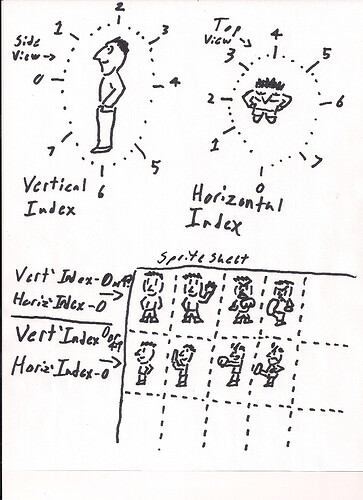 Side
View→
0
1
2
3
4
5
6
7
Vertical
Index
Top
View
0
1
2
3
4
5
6
7
Horizontal
Index
Sprite Sheet
Vert' Index-0
Horiz' Index-0
Vert' Index 0
Horiz' Index-0